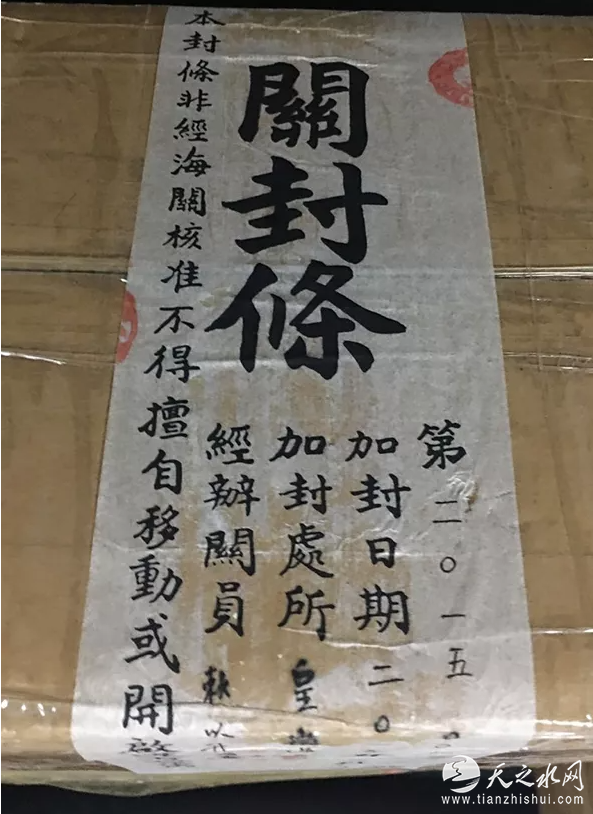 關封條
第二〇一五
加封日期二〇
加封處所皇
經辦關員
本封條非經海關核准不得擅自移動或開啓
天之水网
www.tianzhishui.com